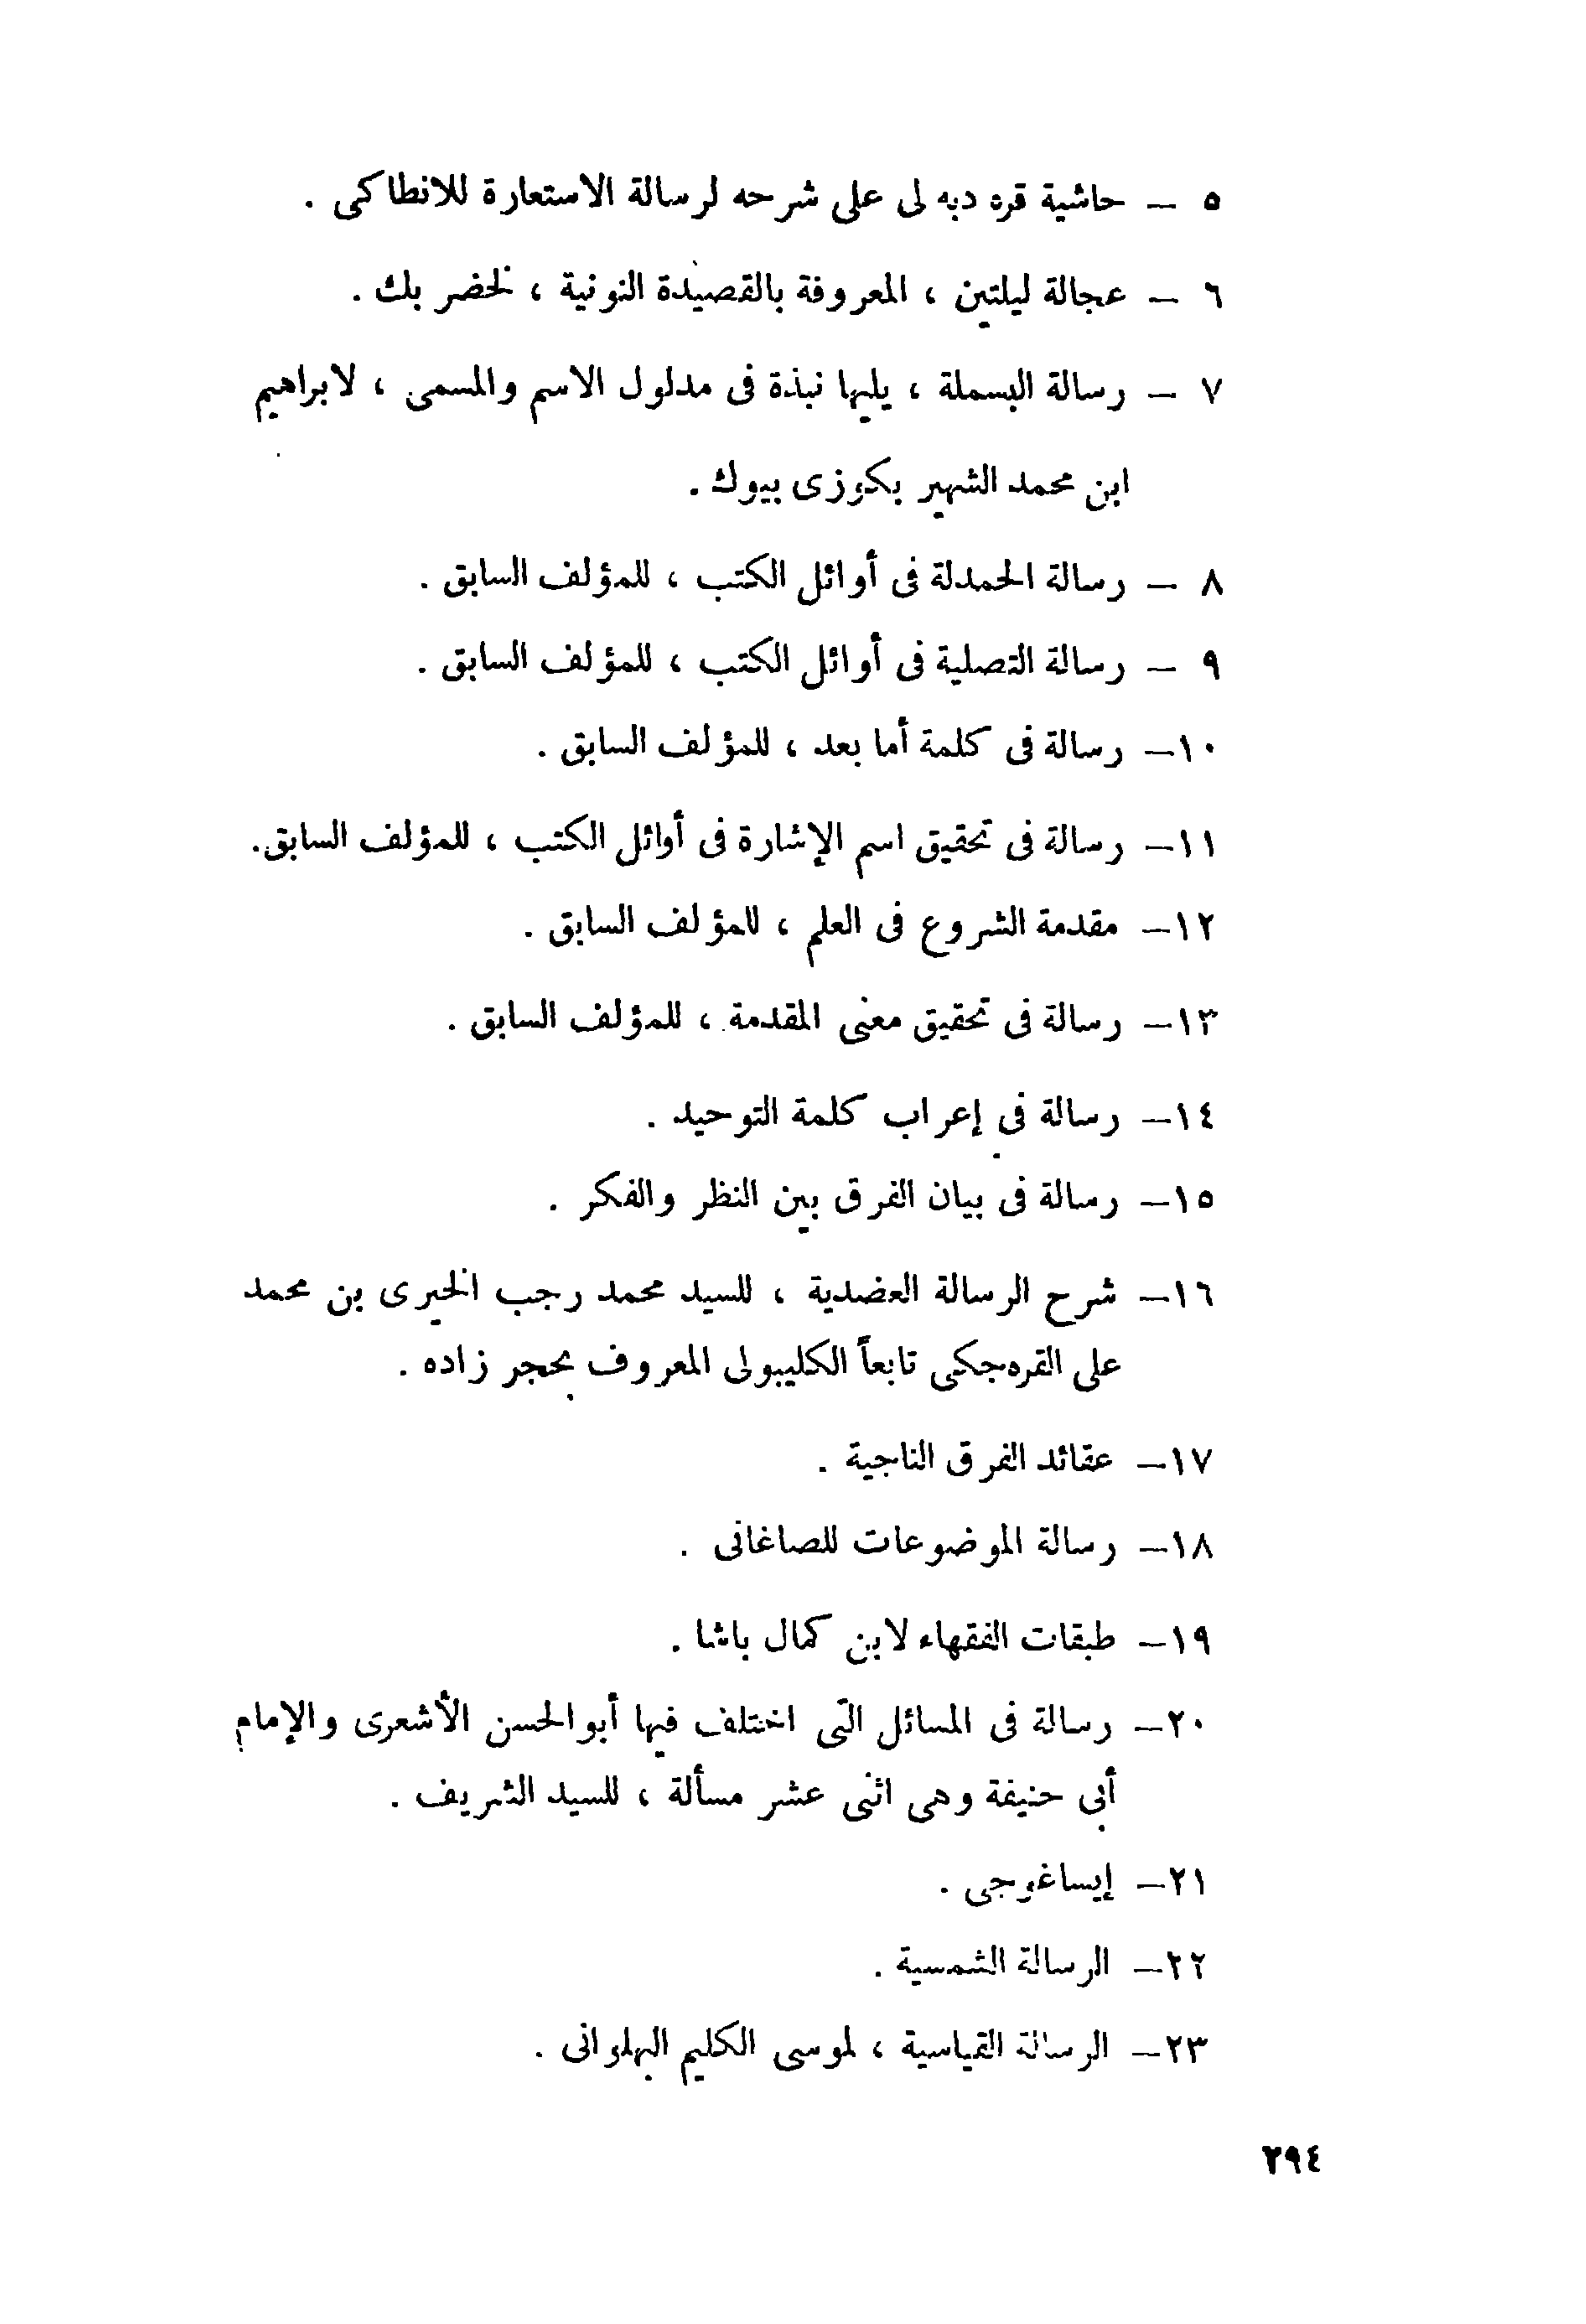 ٥ – حاشية قره دبه لى على شرحه لرسالة الاستعارة للانطاكى .
٦ – عجالة ليلتين ، المعروفة بالقصيدة النونية ، لخضر بك .
٧ – رسالة البسملة ، يليها نبذة فى مدلول الاسم والمسمى ، لابراهيم
ابن محمد الشهير بكوزى بيوك .
٨ – رسالة الحمدلة فى أوائل الكتب ، للمؤلف السابق .
٩ – رسالة التصلية فى أوائل الكتب ، للمؤلف السابق .
١٠– رسالة فى كلمة أما بعد ، للمؤلف السابق .
١١– رسالة فى تحقيق اسم الإشارة فى أوائل الكتب ، للمؤلف السابق.
١٢– مقدمة الشروع فى العلم ، للمؤلف السابق .
١٣– رسالة فى تحقيق معنى المقدمة ، للمؤلف السابق .
١٤– رسالة في إعراب كلمة التوحيد .
١٥– رسالة فى بيان الفرق بين النظر والفكر .
١٦– شرح الرسالة العضدية ، للسيد محمد رجب الخيرى بن محمد
على القره‌جكى تابعاً الكليبولى المعروف بحجر زاده .
١٧– عقائد الفرق الناجية .
١٨– رسالة الموضوعات للصاغانى .
١٩– طبقات الفقهاء لابن كمال باشا .
٢٠– رسالة فى المسائل التى اختلف فيها أبو الحسن الأشعرى والإمام
أبي حنيفة وهى اثنى عشر مسألة ، للسيد الشريف .
٢١– إيساغوجى .
٢٢– الرسالة الشمسية .
٢٣– الرسالة القياسية ، لموسى الكليم البهلوانى .
٢٩٤